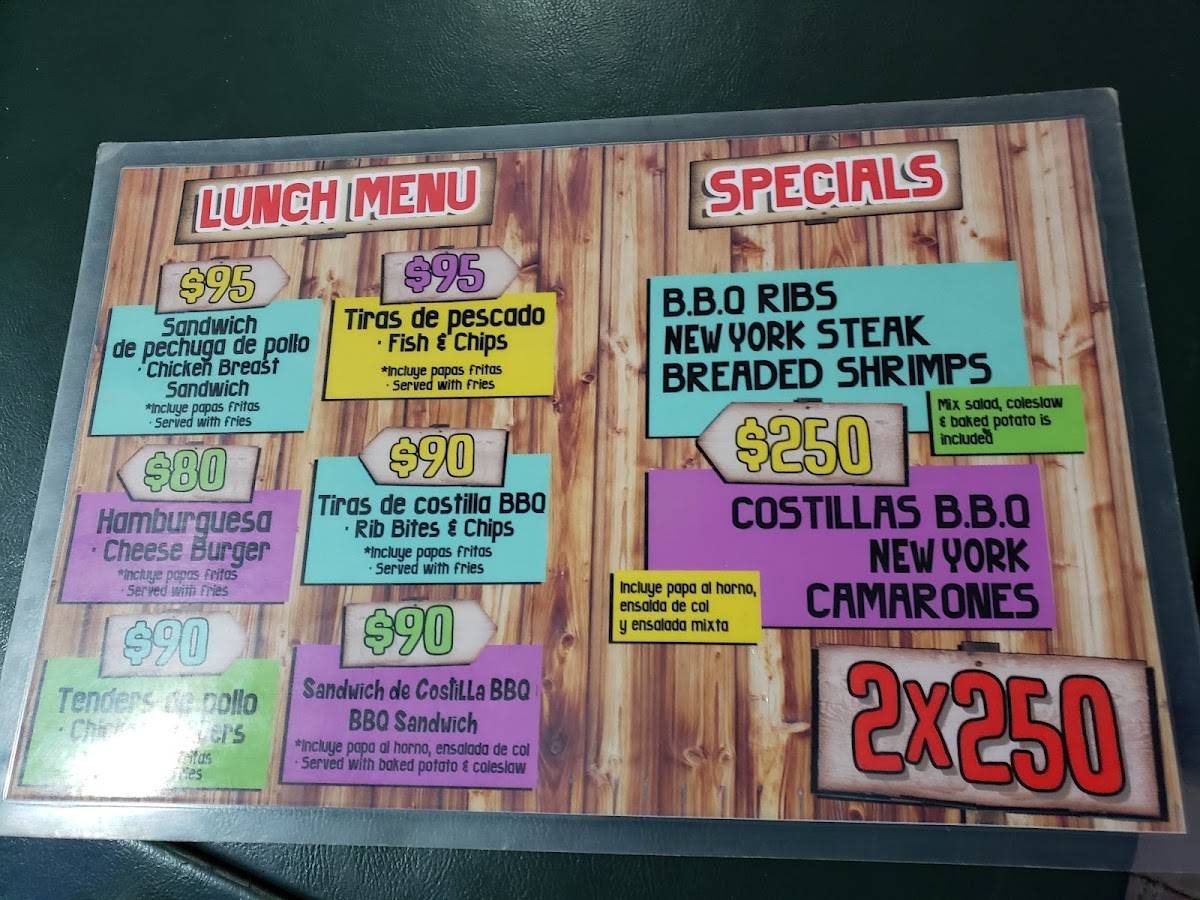 LUNCH MENU
$95
Sandwich
de pechuga de pollo
· Chicken Breast
Sandwich
*Incluye papas fritas
· Served with fries
$95
Tiras de pescado
· Fish & Chips
*Incluye papas fritas
· Served with fries
$80
Hamburguesa
· Cheese Burger
*Incluye papas fritas
· Served with fries
$90
Tiras de costilla BBQ
· Rib Bites & Chips
*Incluye papas fritas
· Served with fries
$90
Tenders de pollo
$90
Sandwich de Costilla BBQ
BBQ Sandwich
*Incluye papa al horno, ensalada de col
· Served with baked potato & coleslaw
SPECIALS
B.B.Q RIBS
NEW YORK STEAK
BREADED SHRIMPS
Mix salad, coleslaw
& baked potato is
included
$250
COSTILLAS B.B.Q
NEW YORK
CAMARONES
Incluye papa al horno,
ensalda de col
y ensalada mixta
2x250